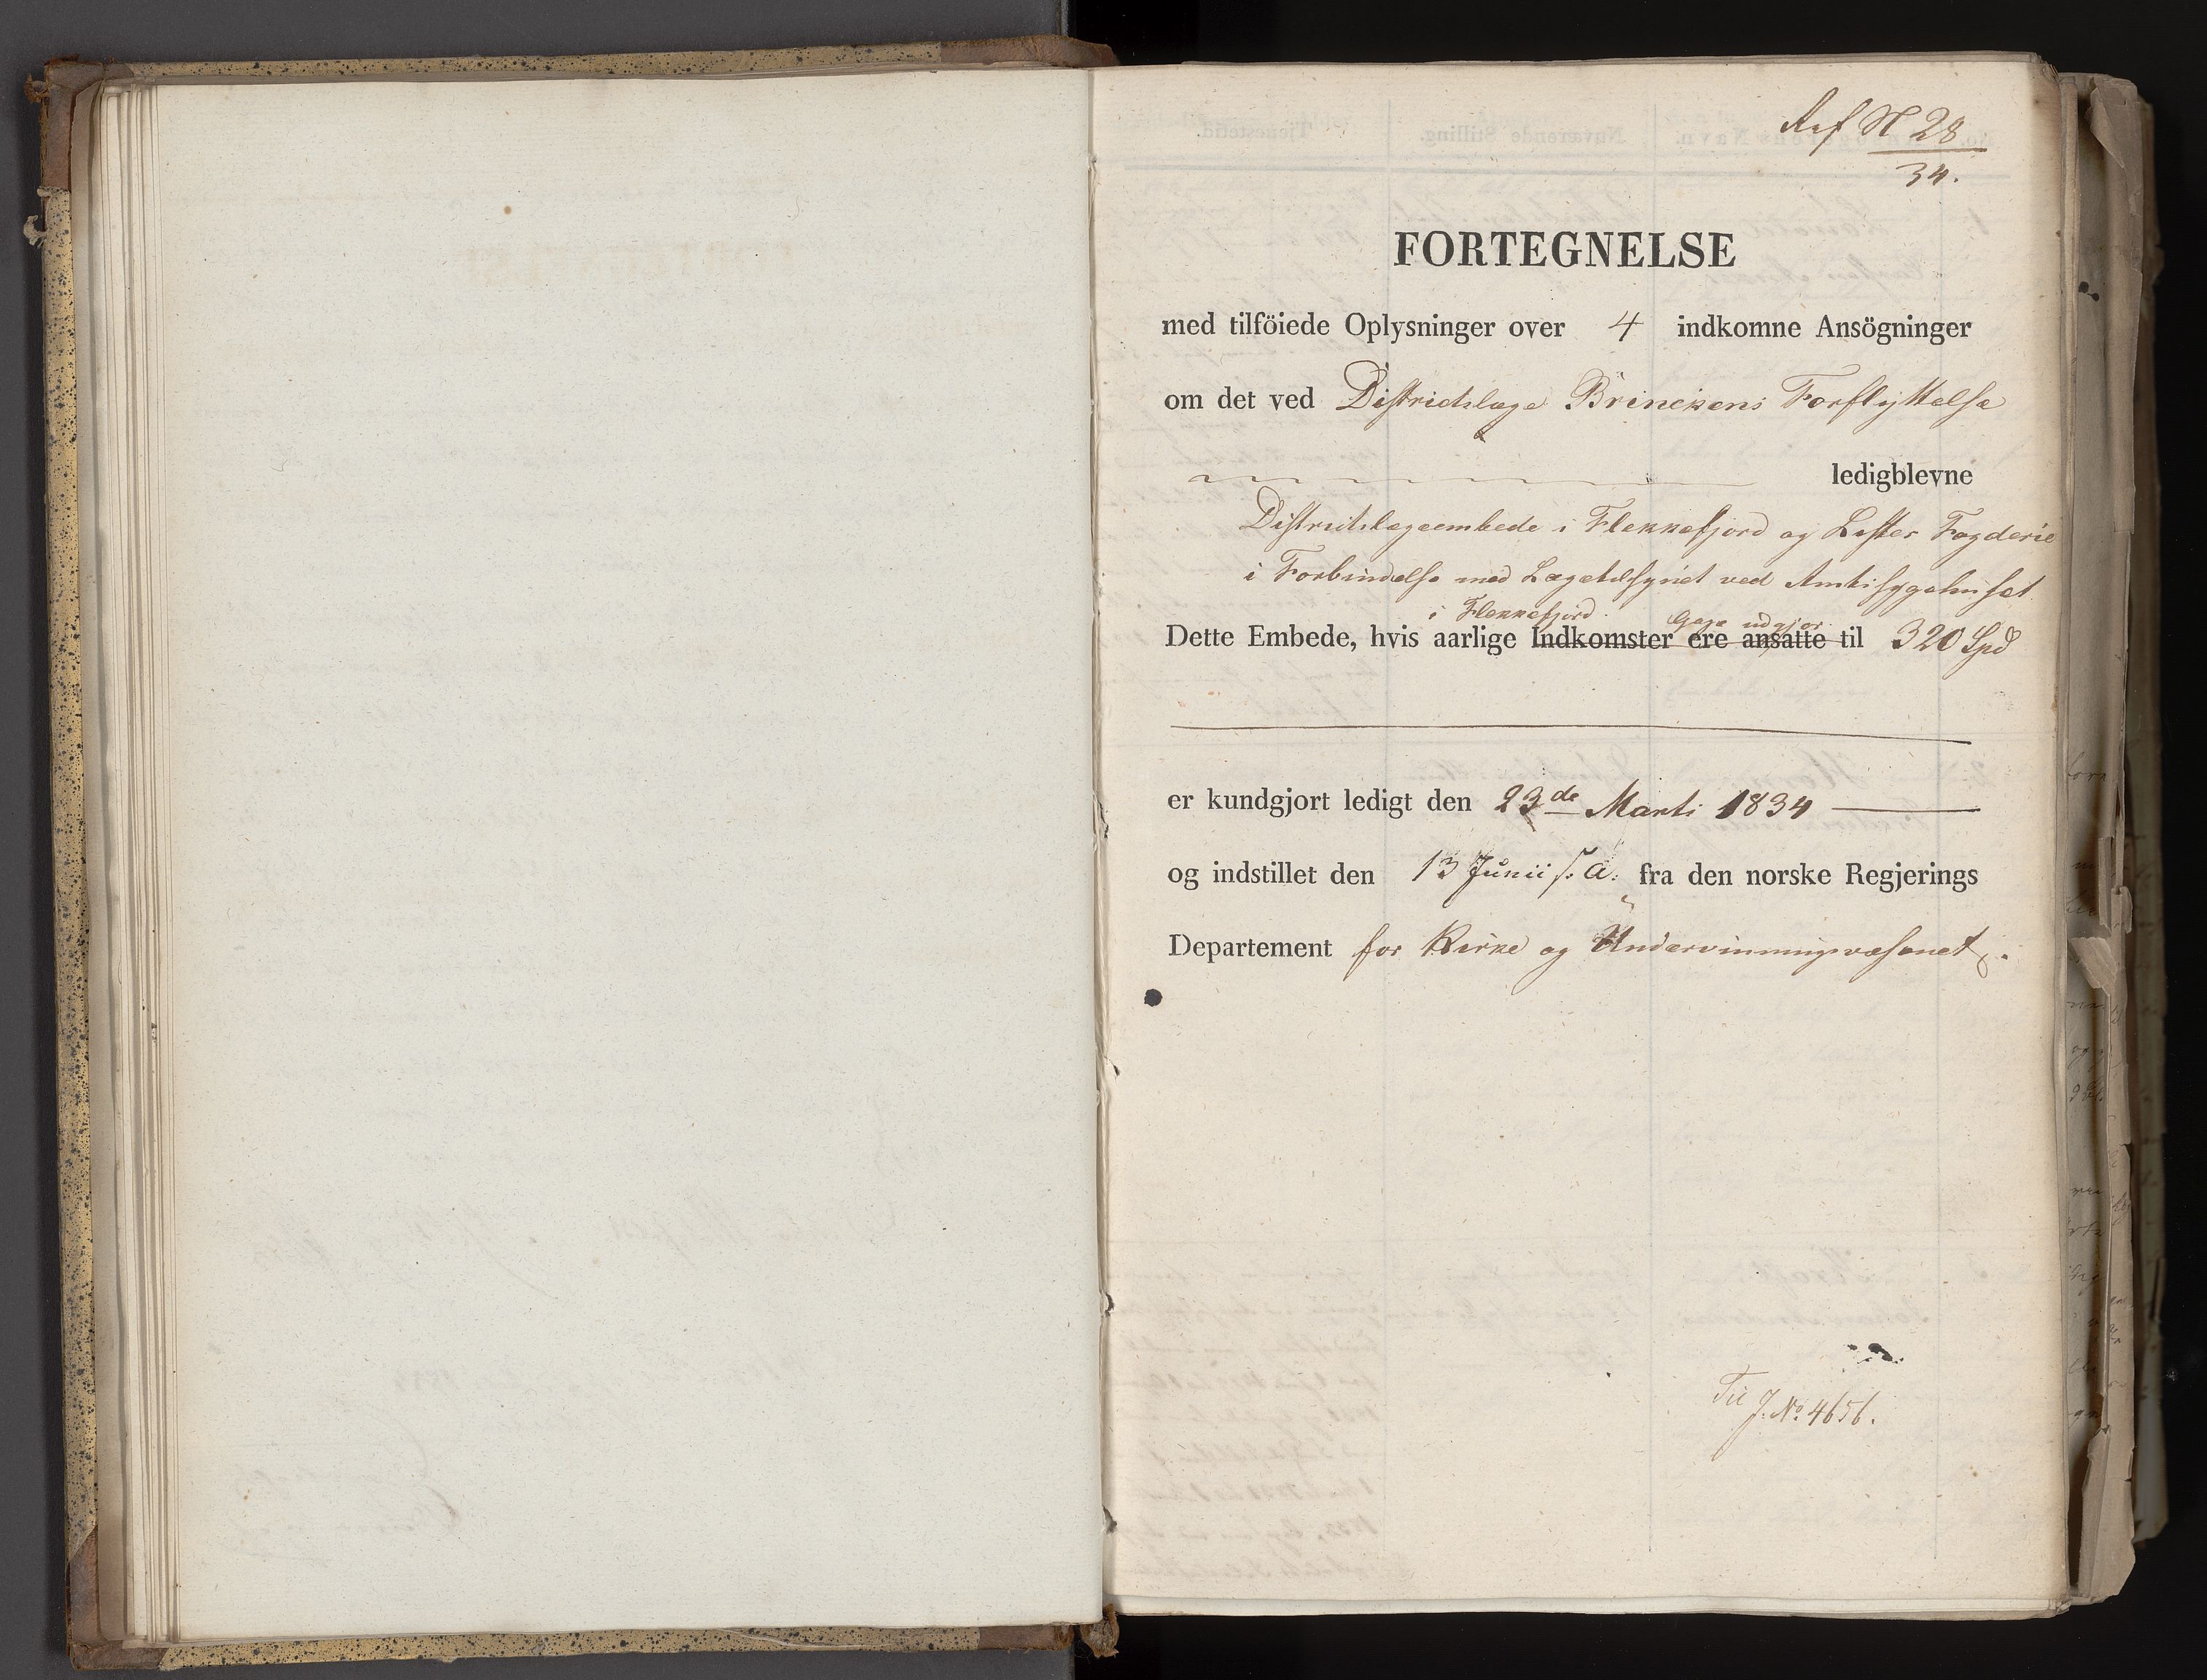 Ref N 28
34.
FORTEGNELSE
med tilföiede Oplysninger over 4 indkomne Ansögninger
om det ved Districtslæge Brinckens Forflyttelse
ledigblevne
Districtslægeembede i Flekkefjord og Lister Fogderie
i Forbindelse med Lægetilsynet ved Amtssygehuset
i Flekkefjord. Gage udgjør
Dette Embede, hvis aarlige Indkomster ere ansatte til 320 Spd
er kundgjort ledigt den 23de Marts 1834
og indstillet den 13 Junii s. A. fra den norske Regjerings
Departement for Kirke og Underviisningsvæsenet.
J. No. 4656.